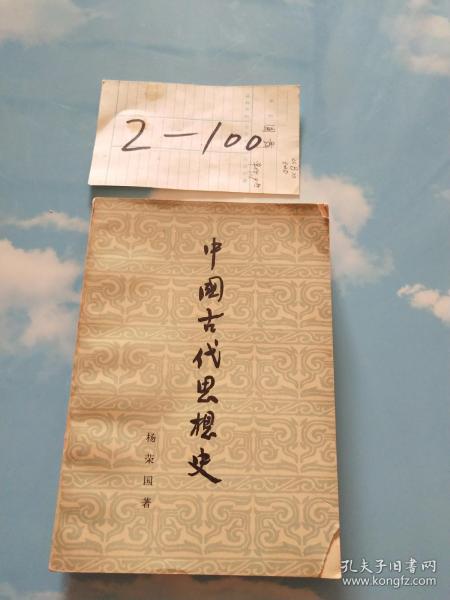 2—100
中國古代思想史
杨荣国著
孔夫子旧书网
www.kongfz.com